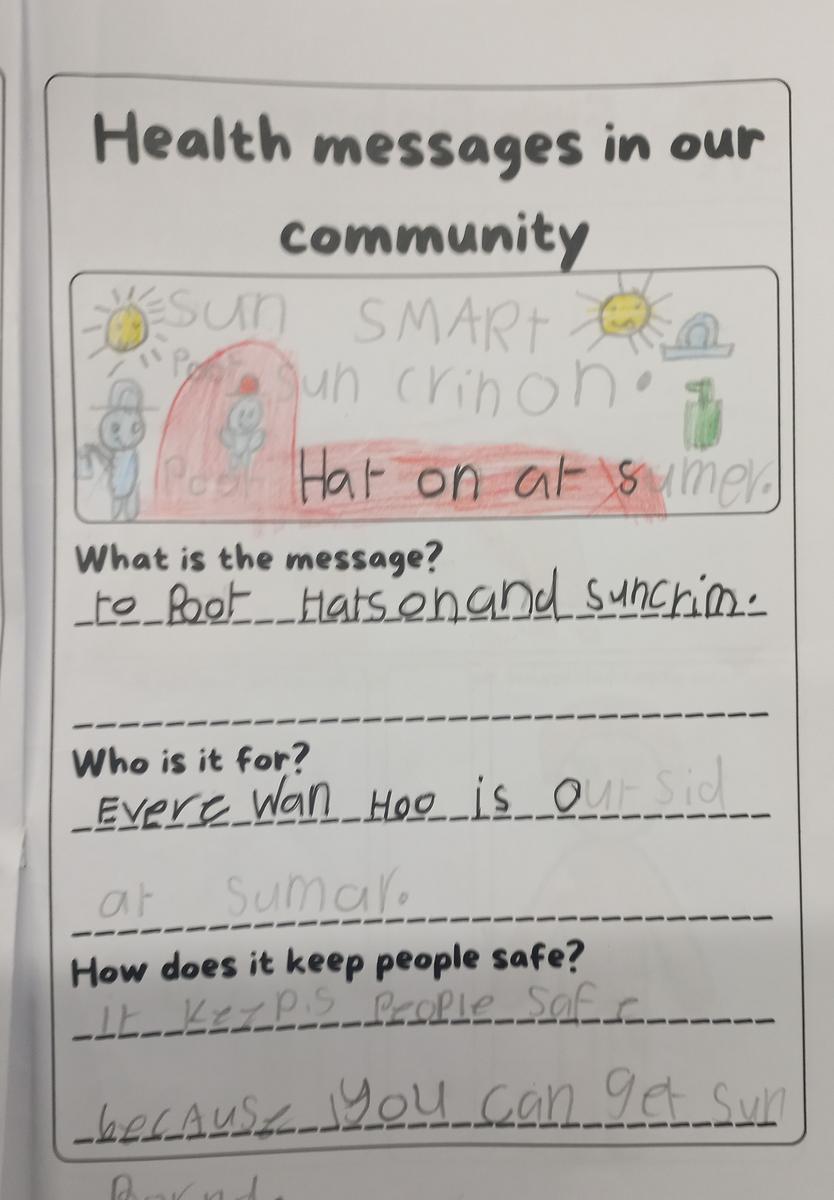 Health messages in our
community
Sun SMARt
Poot sun crin on.
Poot Hat on at sumer.
What is the message?
to Poot Hats on and suncrim.
Who is it for?
Evere wan Hoo is out sid
at sumar.
How does it keep people safe?
It keeps People Safe
because you can get sun